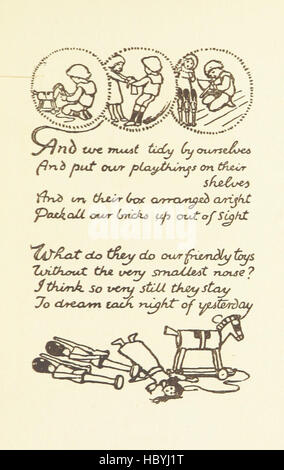 And we must tidy by ourselves
And put our playthings on their
shelves
And in their box arranged aright
Pack all our bricks up out of sight
What do they do our friendly toys
Without the very smallest noise?
I think so very still they stay
To dream each night of yesterday
alamy
Image ID: HBYJ1T
www.alamy.com